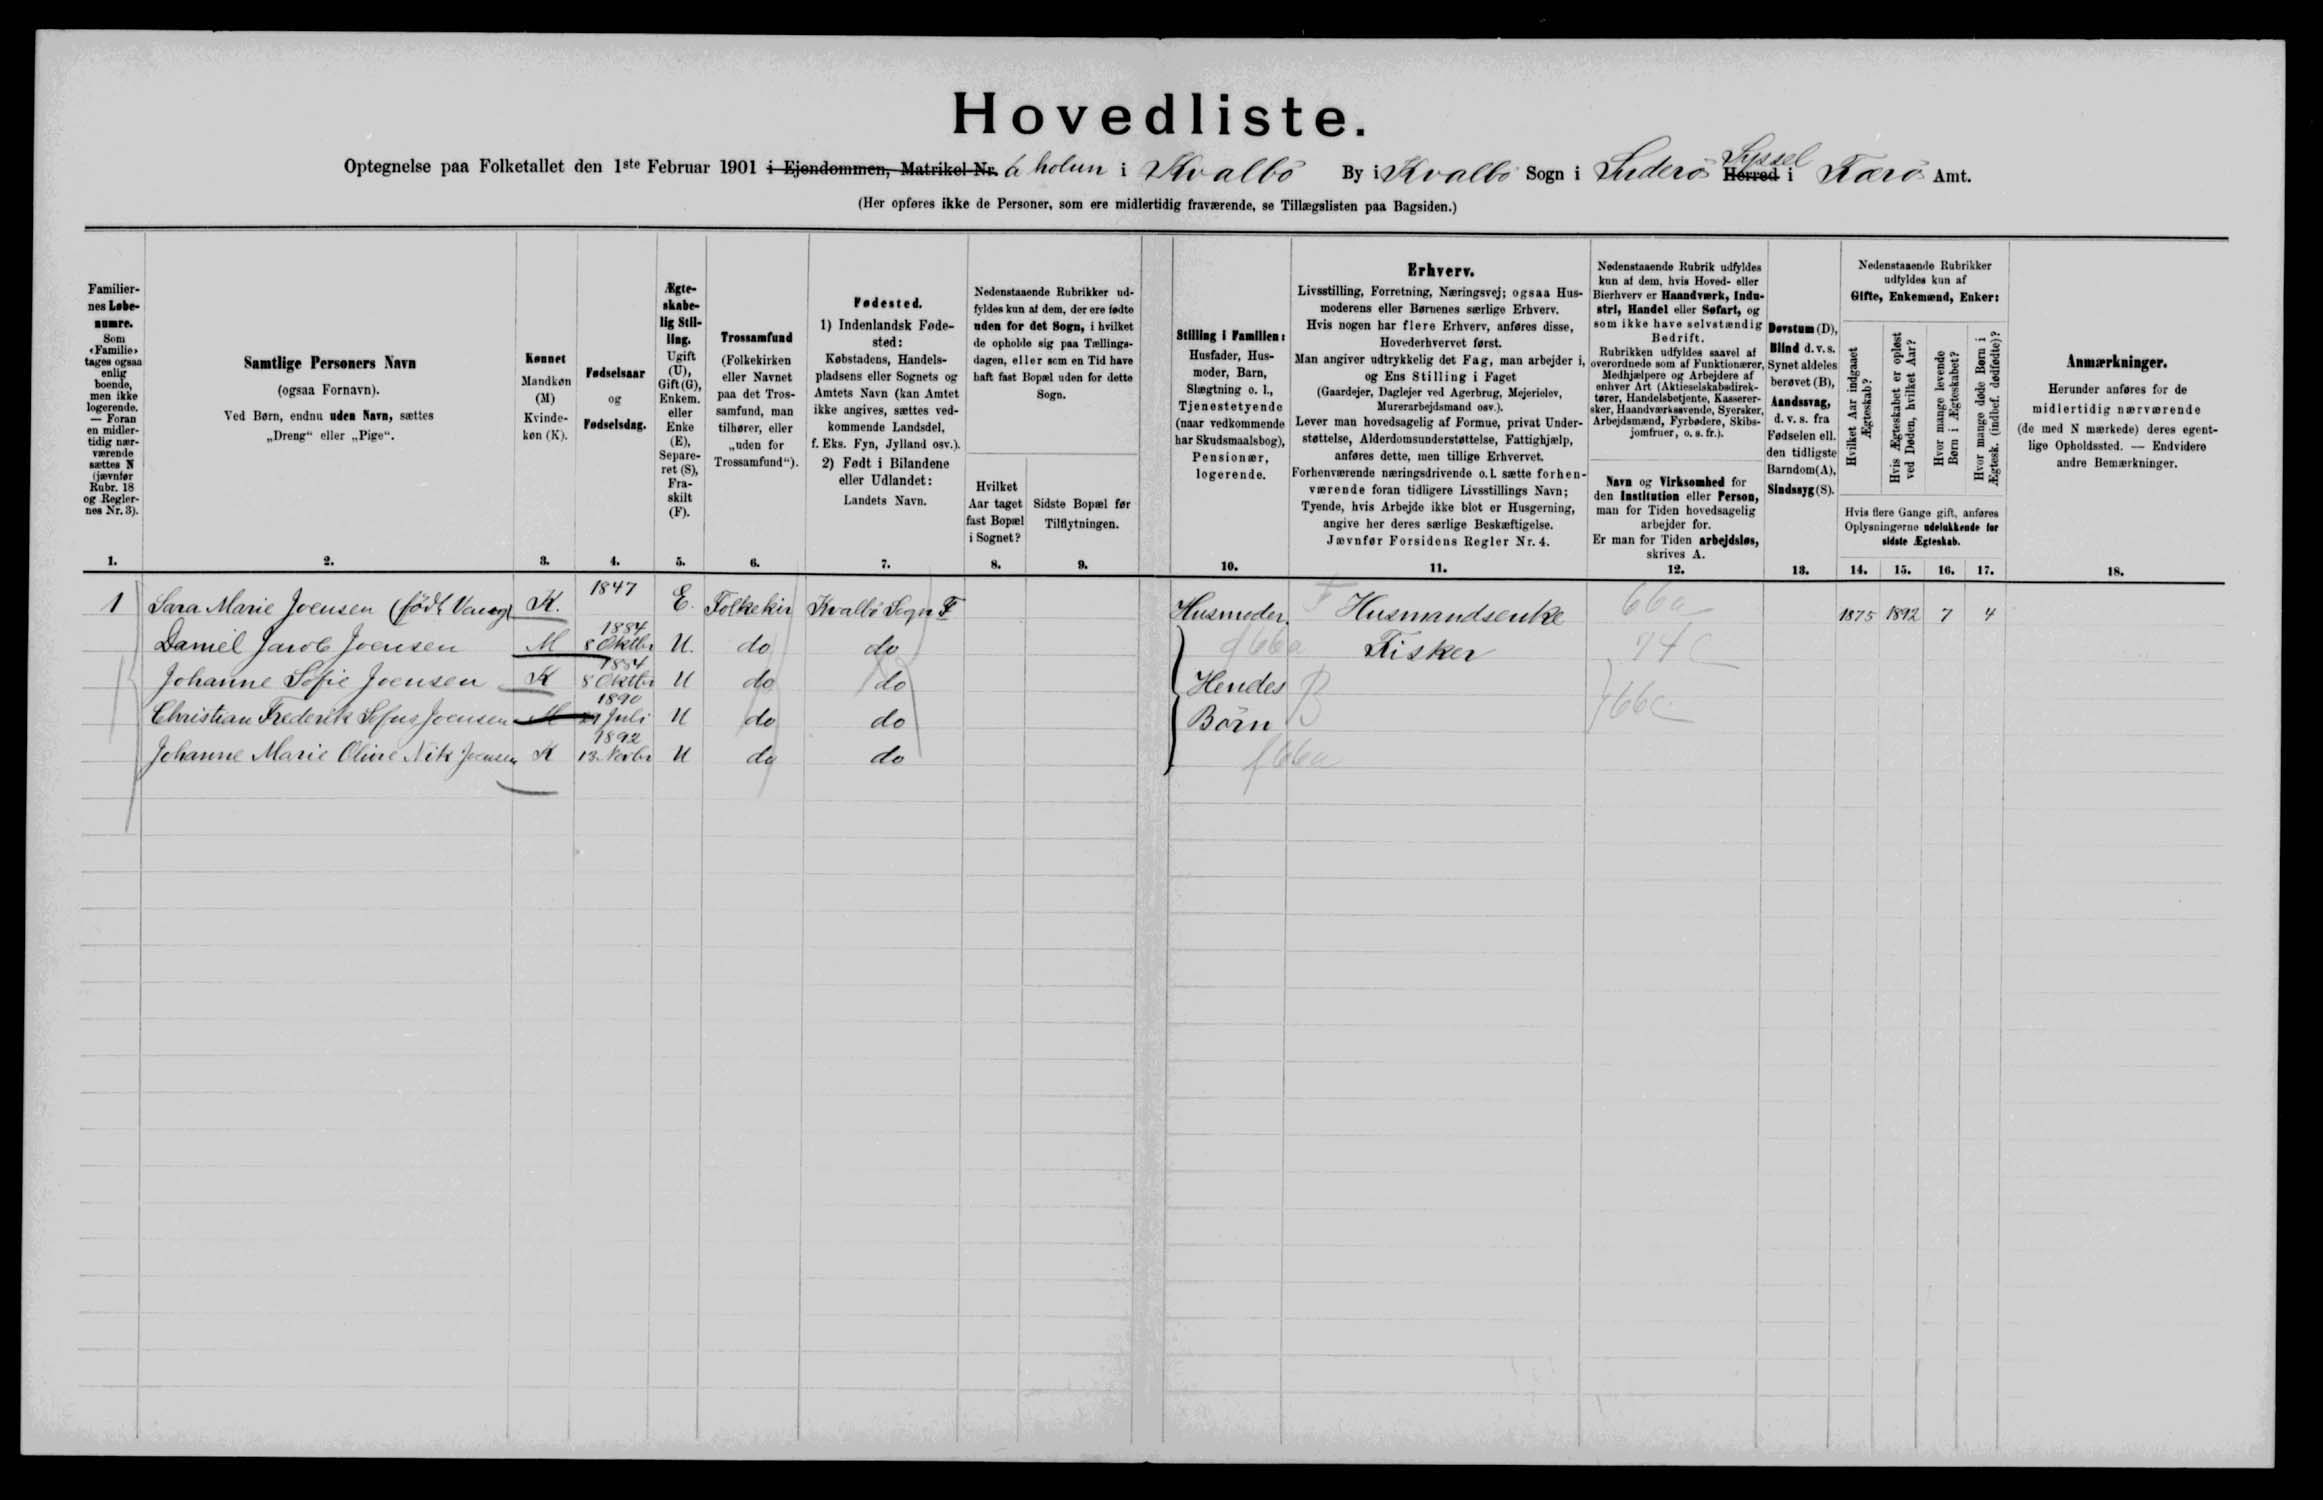 Hovedliste.
Optegnelse paa Folketallet den 1ste Februar 1901 i Ejendommen, Matrikel-Nr. á holun i Kvalbö By i Kvalbö Sogn i Suderö Syssel Herred i Færö Amt.
(Her opføres ikke de Personer, som ere midlertidig fraværende, se Tillægslisten paa Bagsiden.)
Familier-
nes Løbe-
numre.
Som
«Familie»
tages ogsaa
enlig
boende,
men ikke
logerende.
— Foran
en midler-
tidig nær-
værende
sættes N
(jævnfør
Rubr. 18
og Regler-
nes Nr. 3).
1.
Samtlige Personers Navn
(ogsaa Fornavn).
Ved Børn, endnu uden Navn, sættes
„Dreng“ eller „Pige“.
2.
Kønnet
Mandkøn
(M)
Kvinde-
køn (K).
3.
Fødselsaar
og
Fødselsdag.
4.
Ægte-
skabe-
lig Stil-
ling.
Ugift
(U),
Gift (G),
Enkem.
eller
Enke
(E),
Separe-
ret (S),
Fra-
skilt
(F).
5.
Trossamfund
(Folkekirken
eller Navnet
paa det Tros-
samfund, man
tilhører, eller
„uden for
Trossamfund“).
6.
Fødested.
1) Indenlandsk Føde-
sted:
Købstadens, Handels-
pladsens eller Sognets og
Amtets Navn (kan Amtet
ikke angives, sættes ved-
kommende Landsdel,
f. Eks. Fyn, Jylland osv.).
2) Født i Bilandene
eller Udlandet:
Landets Navn.
7.
Nedenstaaende Rubrikker ud-
fyldes kun af dem, der ere fødte
uden for det Sogn, i hvilket
de opholde sig paa Tællings-
dagen, eller som en Tid have
haft fast Bopæl uden for dette
Sogn.
Hvilket
Aar taget
fast Bopæl
i Sognet?
8.
Sidste Bopæl før
Tilflytningen.
9.
Stilling i Familien:
Husfader, Hus-
moder, Barn,
Slægtning o. l.,
Tjenestetyende
(naar vedkommende
har Skudsmaalsbog),
Pensionær,
logerende.
10.
Erhverv.
Livsstilling, Forretning, Næringsvej; ogsaa Hus-
moderens eller Børnenes særlige Erhverv.
Hvis nogen har flere Erhverv, anføres disse,
Hovederhvervet først.
Man angiver udtrykkelig det Fag, man arbejder i,
og Ens Stilling i Faget
(Gaardejer, Daglejer ved Agerbrug, Mejerielev,
Murerarbejdsmand osv.).
Lever man hovedsagelig af Formue, privat Under-
støttelse, Alderdomsunderstøttelse, Fattighjælp,
anføres dette, men tillige Erhvervet.
Forhenværende næringsdrivende o. l. sætte forhen-
værende foran tidligere Livsstillings Navn;
Tyende, hvis Arbejde ikke blot er Husgerning,
angive her deres særlige Beskæftigelse.
Jævnfør Forsidens Regler Nr. 4.
11.
Nedenstaaende Rubrik udfyldes
kun af dem, hvis Hoved- eller
Bierhverv er Haandværk, Indu-
stri, Handel eller Søfart, og
som ikke have selvstændig
Bedrift.
Rubrikken udfyldes saavel af
overordnede som af Funktionærer,
Medhjælpere og Arbejdere af
enhver Art (Aktieselskabsdirek-
tører, Handelsbetjente, Kasserer-
sker, Haandværkssvende, Syersker,
Arbejdsmænd, Fyrbødere, Skibs-
jomfruer, o. s. fr.).
Navn og Virksomhed for
den Institution eller Person,
man for Tiden hovedsagelig
arbejder for.
Er man for Tiden arbejdsløs,
skrives A.
12.
Døvstum (D),
Blind d. v. s.
Synet aldeles
berøvet (B),
Aandssvag,
d. v. s. fra
Fødselen ell.
den tidligste
Barndom (A),
Sindssyg (S).
13.
Nedenstaaende Rubrikker
udfyldes kun af
Gifte, Enkemænd, Enker:
Hvilket Aar indgaaet
Ægteskab?
Hvis Ægteskabet er opløst
ved Døden, hvilket Aar?
Hvor mange levende
Børn i Ægteskabet?
Hvor mange døde Børn i
Ægtesk. (indbef. dødfødte)?
Hvis flere Gange gift, anføres
Oplysningerne udelukkende for
sidste Ægteskab.
14. 15. 16. 17.
Anmærkninger.
Herunder anføres for de
midlertidig nærværende
(de med N mærkede) deres egent-
lige Opholdssted. — Endvidere
andre Bemærkninger.
18.
1 Sara Marie Joensen (født Vang) K. 1847 E. Folkekir Kvalbö Sogn F Husmoder. F Husmandsenke 66a 1875 1892 7 4
Daniel Jacob Joensen M 1884 8 Oktbr U. do do f66a Fisker 74 C
Johanne Sofie Joensen K 1884 8 Oktbr U do do Hendes B
Christian Frederik Sofus Joensen M 1890 21 Juli U do do Börn 66c
Johanne Marie Oline Nik Joensen K 1892 13. Novbr U do do f66a